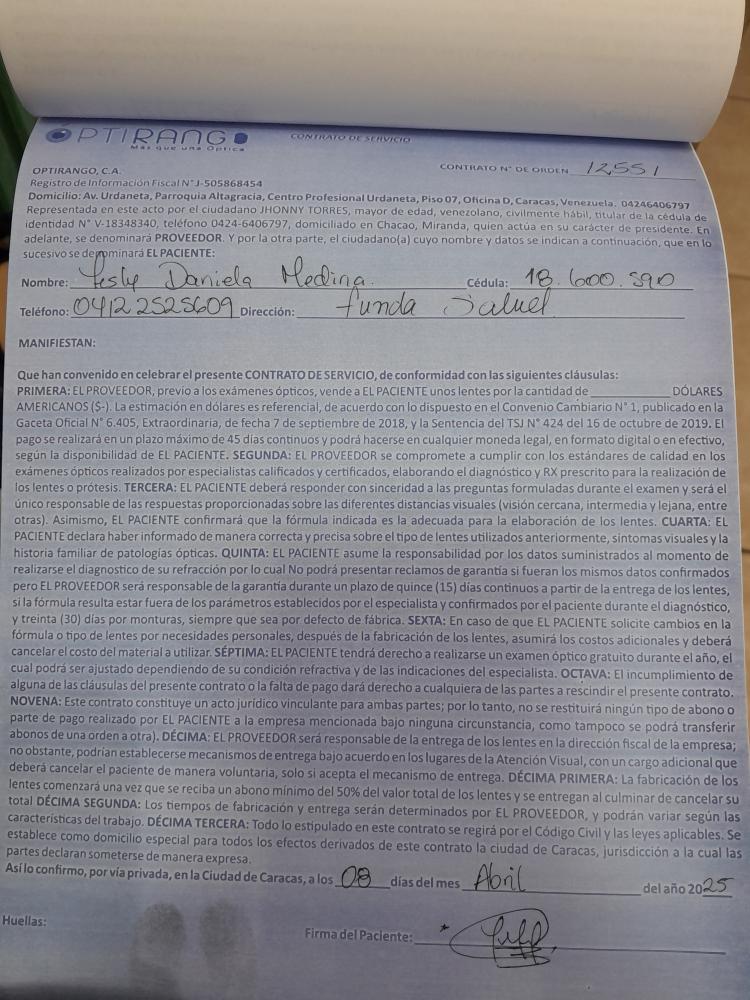 OPTIRANGO
Más que una Óptica
CONTRATO DE SERVICIO
OPTIRANGO, C.A.
CONTRATO N° DE ORDEN 12551
Registro de Información Fiscal N°J-505868454
Domicilio: Av. Urdaneta, Parroquia Altagracia, Centro Profesional Urdaneta, Piso 07, Oficina D, Caracas, Venezuela. 04246406797
Representada en este acto por el ciudadano JHONNY TORRES, mayor de edad, venezolano, civilmente hábil, titular de la cédula de
identidad N° V-18348340, teléfono 0424-6406797, domiciliado en Chacao, Miranda, quien actúa en su carácter de presidente. En
adelante, se denominará PROVEEDOR. Y por la otra parte, el ciudadano(a) cuyo nombre y datos se indican a continuación, que en lo
sucesivo se denominará EL PACIENTE:
Nombre: Lesly Daniela Medina Cédula: 18.600.590
Teléfono: 04122525609 Dirección: funda Salud
MANIFIESTAN:
Que han convenido en celebrar el presente CONTRATO DE SERVICIO, de conformidad con las siguientes cláusulas:
PRIMERA: EL PROVEEDOR, previo a los exámenes ópticos, vende a EL PACIENTE unos lentes por la cantidad de __________ DÓLARES
AMERICANOS ($-). La estimación en dólares es referencial, de acuerdo con lo dispuesto en el Convenio Cambiario N° 1, publicado en la
Gaceta Oficial N° 6.405, Extraordinaria, de fecha 7 de septiembre de 2018, y la Sentencia del TSJ N° 424 del 16 de octubre de 2019. El
pago se realizará en un plazo máximo de 45 días continuos y podrá hacerse en cualquier moneda legal, en formato digital o en efectivo,
según la disponibilidad de EL PACIENTE. SEGUNDA: EL PROVEEDOR se compromete a cumplir con los estándares de calidad en los
exámenes ópticos realizados por especialistas calificados y certificados, elaborando el diagnóstico y RX prescrito para la realización de
los lentes o prótesis. TERCERA: EL PACIENTE deberá responder con sinceridad a las preguntas formuladas durante el examen y será el
único responsable de las respuestas proporcionadas sobre las diferentes distancias visuales (visión cercana, intermedia y lejana, entre
otras). Asimismo, EL PACIENTE confirmará que la fórmula indicada es la adecuada para la elaboración de los lentes. CUARTA: EL
PACIENTE declara haber informado de manera correcta y precisa sobre el tipo de lentes utilizados anteriormente, síntomas visuales y la
historia familiar de patologías ópticas. QUINTA: EL PACIENTE asume la responsabilidad por los datos suministrados al momento de
realizarse el diagnostico de su refracción por lo cual No podrá presentar reclamos de garantía si fueran los mismos datos confirmados
pero EL PROVEEDOR será responsable de la garantía durante un plazo de quince (15) días continuos a partir de la entrega de los lentes,
si la fórmula resulta estar fuera de los parámetros establecidos por el especialista y confirmados por el paciente durante el diagnóstico,
y treinta (30) días por monturas, siempre que sea por defecto de fábrica. SEXTA: En caso de que EL PACIENTE solicite cambios en la
fórmula o tipo de lentes por necesidades personales, después de la fabricación de los lentes, asumirá los costos adicionales y deberá
cancelar el costo del material a utilizar. SÉPTIMA: EL PACIENTE tendrá derecho a realizarse un examen óptico gratuito durante el año, el
cual podrá ser ajustado dependiendo de su condición refractiva y de las indicaciones del especialista. OCTAVA: El incumplimiento de
alguna de las cláusulas del presente contrato o la falta de pago dará derecho a cualquiera de las partes a rescindir el presente contrato.
NOVENA: Este contrato constituye un acto jurídico vinculante para ambas partes; por lo tanto, no se restituirá ningún tipo de abono o
parte de pago realizado por EL PACIENTE a la empresa mencionada bajo ninguna circunstancia, como tampoco se podrá transferir
abonos de una orden a otra). DÉCIMA: EL PROVEEDOR será responsable de la entrega de los lentes en la dirección fiscal de la empresa;
no obstante, podrían establecerse mecanismos de entrega bajo acuerdo en los lugares de la Atención Visual, con un cargo adicional que
deberá cancelar el paciente de manera voluntaria, solo si acepta el mecanismo de entrega. DÉCIMA PRIMERA: La fabricación de los
lentes comenzará una vez que se reciba un abono mínimo del 50% del valor total de los lentes y se entregan al culminar de cancelar su
total DÉCIMA SEGUNDA: Los tiempos de fabricación y entrega serán determinados por EL PROVEEDOR, y podrán variar según las
características del trabajo. DÉCIMA TERCERA: Todo lo estipulado en este contrato se regirá por el Código Civil y las leyes aplicables. Se
establece como domicilio especial para todos los efectos derivados de este contrato la ciudad de Caracas, jurisdicción a la cual las
partes declaran someterse de manera expresa.
Así lo confirmo, por vía privada, en la Ciudad de Caracas, a los 08 días del mes Abril del año 2025
Huellas:
Firma del Paciente: